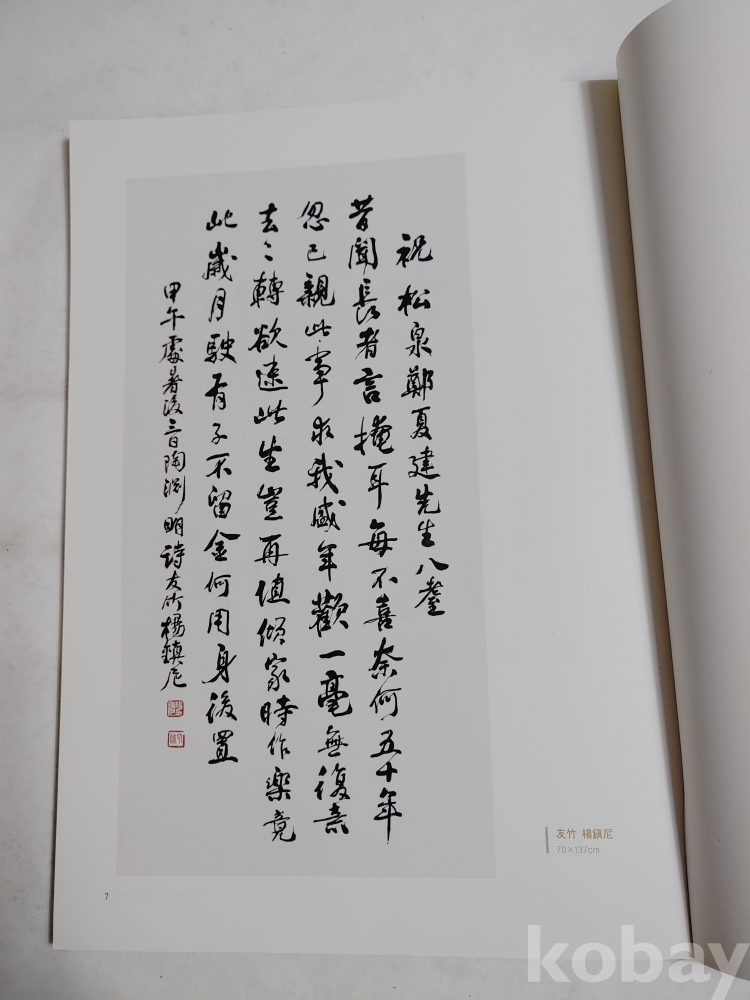 祝松泉鄭夏建先生八耋
昔聞長者言掩耳每不喜奈何五十年
忽已親此事求我盛年歡一毫無復意
去〻轉欲速此生豈再值傾家時作樂竟
此歲月駛有子不留金何用身後置
甲午處暑後三日陶淵明詩友竹楊鎮尼
友竹 楊鎭尼
70×137cm
7
kobay